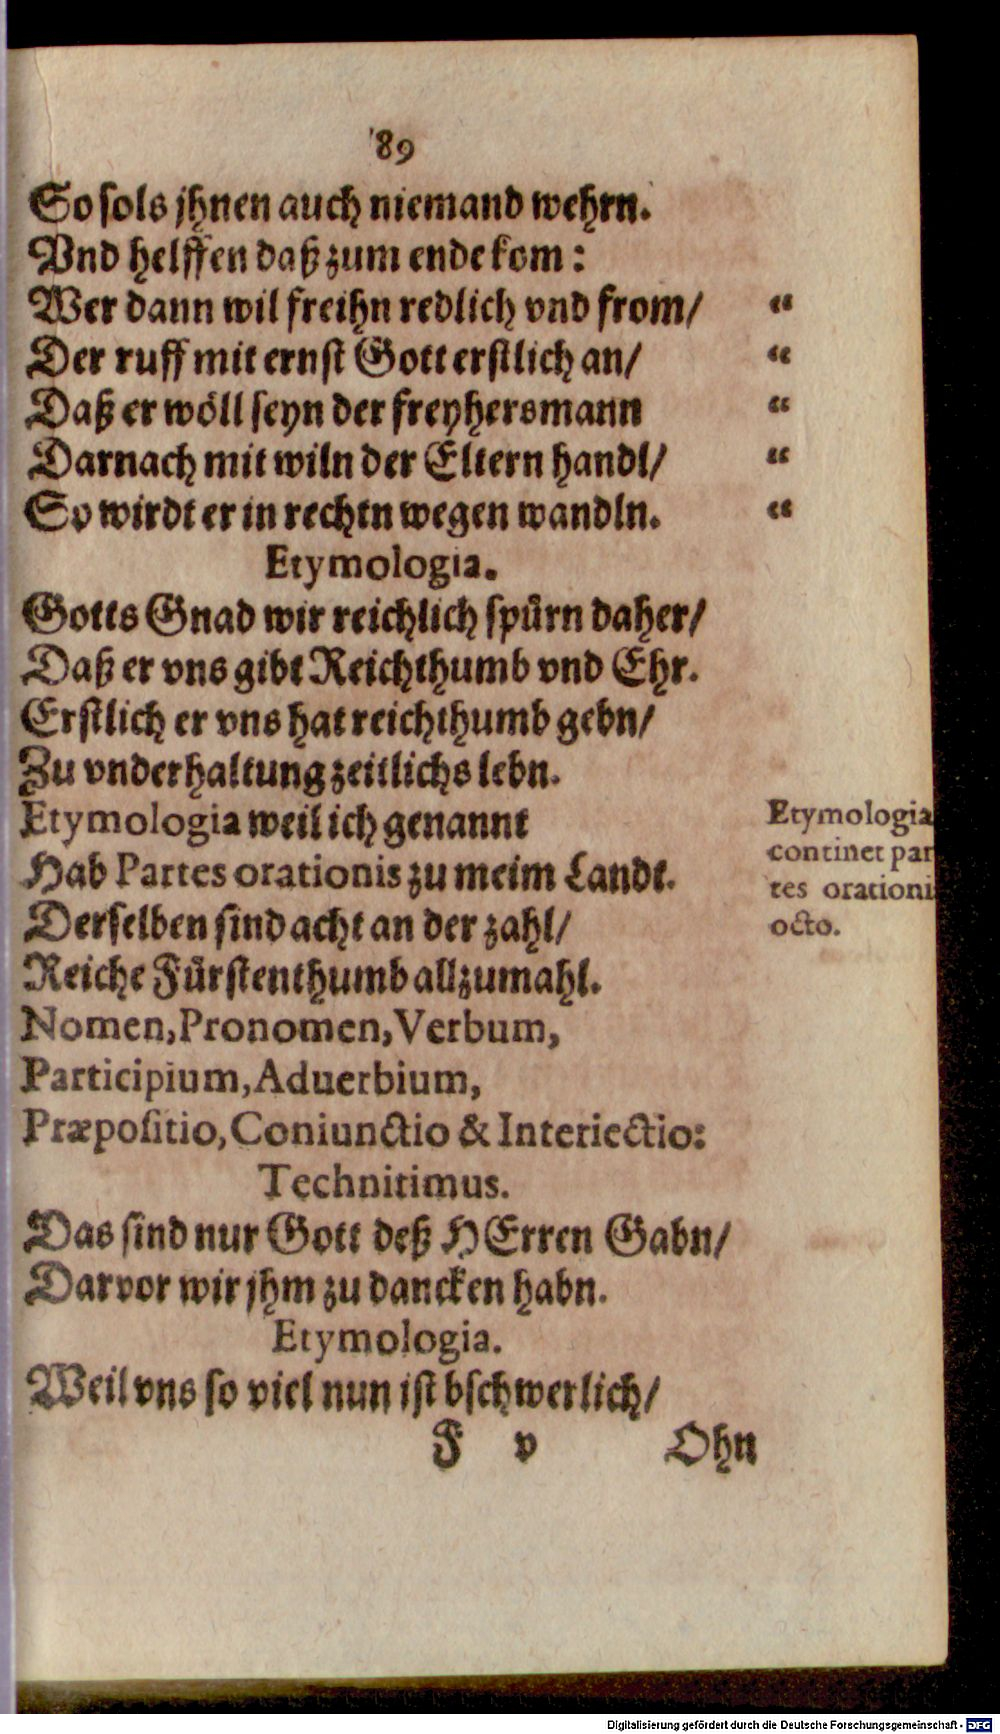 89
So sols jhnen auch niemand wehrn.
Vnd helffen daß zum ende kom:
Wer dann wil freihn redlich vnd from/ “
Der ruff mit ernst Gott erstlich an/ “
Daß er wöll seyn der freyhersmann “
Darnach mit wiln der Eltern handl/ “
So wirdt er in rechtn wegen wandln. “
Etymologia.
Gotts Gnad wir reichlich spürn daher/
Daß er vns gibt Reichthumb vnd Ehr.
Erstlich er vns hat reichthumb gebn/
Zu vnderhaltung zeitlichs lebn.
Etymologia weil ich genannt
Hab Partes orationis zu meim Landt.
Derselben sind acht an der zahl/
Reiche Fürstenthumb allzumahl.
Nomen, Pronomen, Verbum,
Participium, Aduerbium,
Præpositio, Coniunctio & Interiectio:
Etymologia
continet par
tes orationi
octo.
Technitimus.
Das sind nur Gott deß HErren Gabn/
Darvor wir jhm zu dancken habn.
Etymologia.
Weil vns so viel nun ist bschwerlich/
F v Ohn
Digitalisierung gefördert durch die Deutsche Forschungsgemeinschaft - DFG